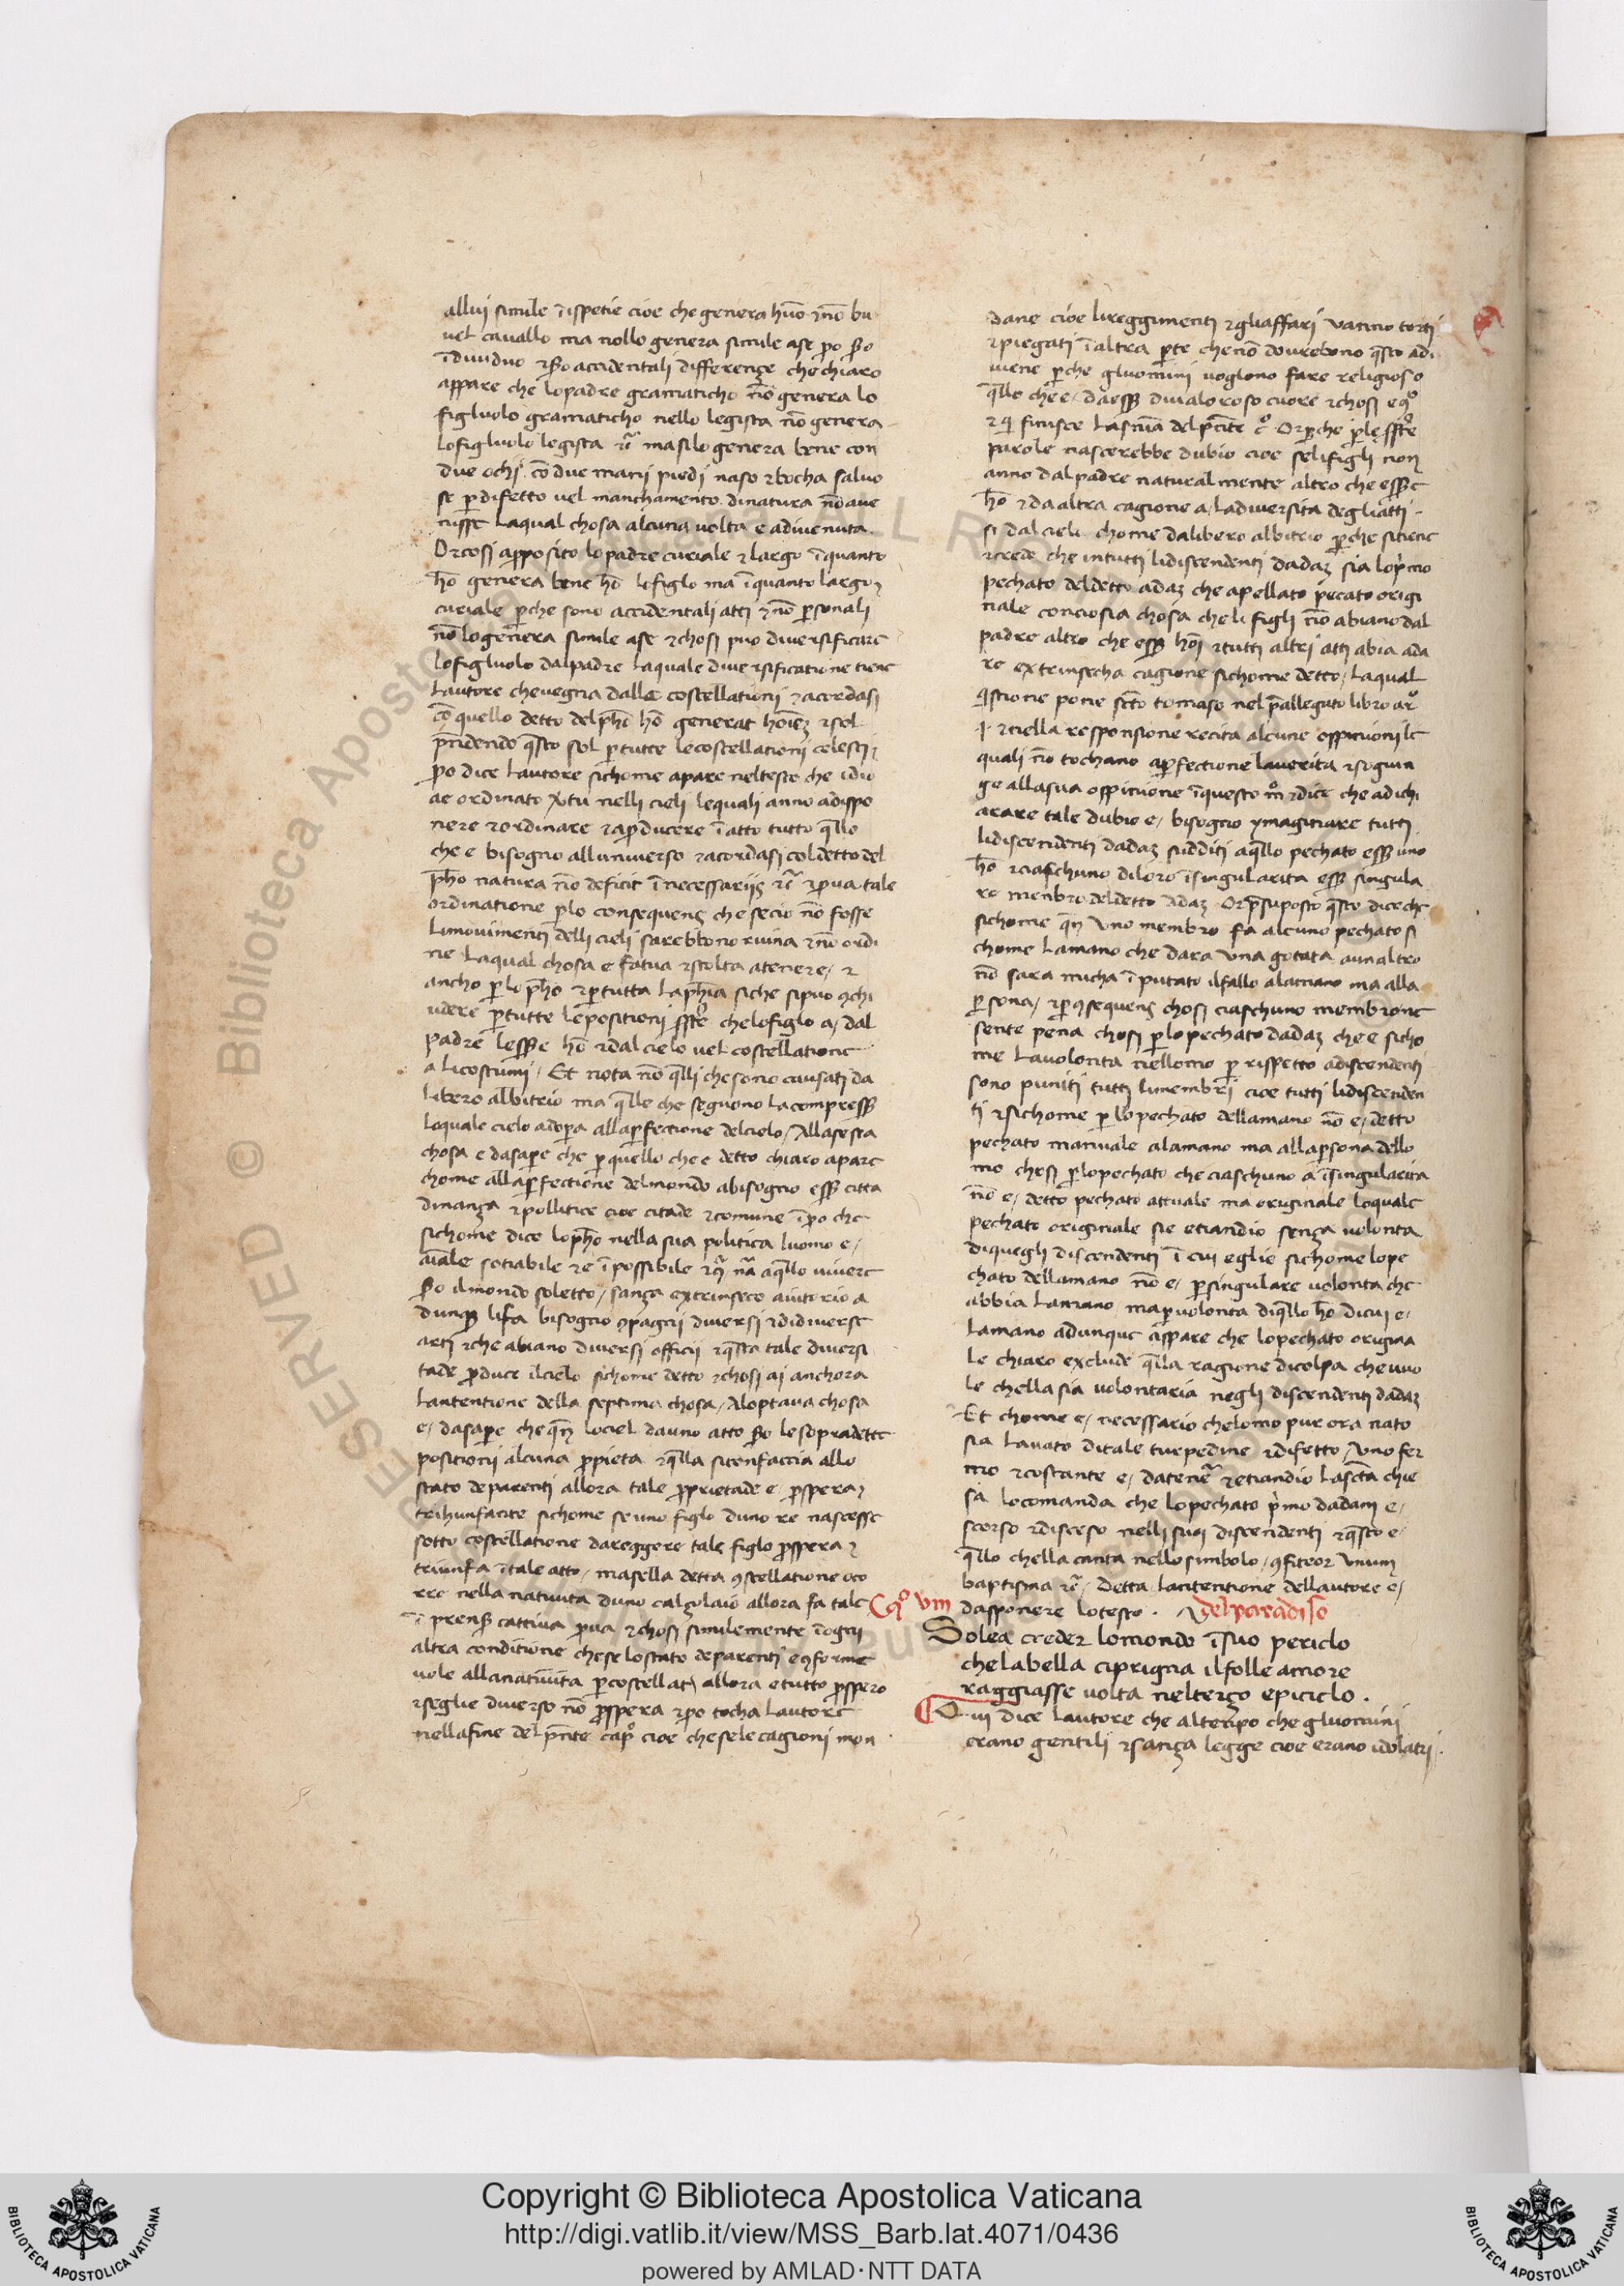 allui simile ĩ ispetie cioe che genera huõ ⁊ nõ bu
uel cauallo ma nollo genera simile ase po sbo
ĩdiuiduo ⁊ sbo accidentali differençe che chiaro
appare che lo padre gramaticho nõ genera lo
figluolo gramaticho nello legista nõ genera
lo figluolo legista ⁊c̃ ma silo genera bene con
due ochi cõ due mani piedi naso ⁊ bocha saluo
se p difetto uel manchamento di natura nõ aue
nisse laqual chosa alcuna uolta e adiuenuta
Or cosi apposito lo padre curiale ⁊ largo ĩquanto
hõ genera bene hõ lo figlo ma ĩquanto largo ⁊
curiale pche sono accidentali atti ⁊ nõ psonali
nõ lo genera simile ase ⁊ chosi puo diuersificare
lo figluolo dal padre laquale diuersificatione tiene
lautore che uegna dalle costellationi ⁊ acordasi
cõ quello detto del ph̃o hõ generat hoiẽz ⁊ sol
p̃ndendo q̃sto sol p tutte le costellationi celesti
po dice lautore sichome apare nel testo che idio
ae ordinato v̾tu nelli cieli lequali anno adispo
nere ⁊ ordinare ⁊ apducere ĩ atto tutto q̃llo
che e bisogno alluniuerso ⁊ acordasi col detto del
ph̃o natura nõ deficit ĩ necessariis ⁊c̃ ⁊ pua tale
ordinatione plo consequens che se cio nõ fosse
li mouimenti delli cieli sarebbono ruina ⁊ nõ ordi
ne laqual chosa e fatua ⁊ stolta atenere ⁊
ancho p lo ph̃o ⁊ p tutta la ph̃ia siche si puo ꝯchi
udere p tutte le positioni sste che lo figlo a dal
padre lesse hõ ⁊ dal cielo uel costellatione
a li costumi Et nota nõ q̃lli che sono causati da
libero albitrio ma q̃lle che seguono la compress
loquale cielo adopa alla pfectione del cielo Alla sesta
chosa e da sape che p quello che e detto chiaro apare
chome alla pfectione del mondo abisogno ess citta
dinança ⁊ pollitice cioe citade ⁊ comune ĩpo che
sichome dice lo ph̃o nella sua politica luomo e
aĩale sotiabile ⁊ e ĩpossibile ⁊ ꝯ̃ na aq̃llo uiuere
sbo il mondo soletto sança extrinseco aiutorio a
dunq li fa bisogno ꝯpagni diuersi ⁊ di diuerse
arti ⁊ che abiano diuersi officii ⁊ q̃sta tale diuersi
tade pduce il cielo sichome detto ⁊ chosi ai anchora
lantentione della septima chosa Aloptaua chosa
e da sape che qñ lo ciel dauno atto sbo le sopradette
positioni alcuna ppieta ⁊ q̃lla si confaccia allo
stato de parenti allora tale pprietade e pspera ⁊
trihunfante sichome se uno figlo duno re nascesse
sotto costellatione da reggere tale figlo pspera ⁊
triunfa ĩ tale atto ma se lla detta ꝯstellatione oco
rre nella natiuita duno calçolaio allora fa tale
ĩ prens cattiua pua ⁊ chosi similemente ĩ ogni
altra conditione che se lo stato de parenti e ꝯforme
uole alla natiuita p costellat allora e tutto pspero
⁊ segli e diuerso nõ pspera ⁊ po tocha lautore
nella fine del p̃nte capº cioe che se le cagioni mon
dane cioe li reggimenti ⁊ gli affari uanno torti
⁊ piegati ĩ altra pte che nõ dourebono q̃sto adi
uiene pche gluomini uoglono fare religioso
q̃llo che e da ess di ualoroso cuore ⁊ chosi e qº
⁊ qi finisce la sñia del p̃nte cº Or pche p le sste
parole nascerebbe dubio cioe se li figli non
anno dal padre naturalmente altro che essere
hõ ⁊ da altra cagione a la diuersita degli atti
si dal cieli chome dalibero albitrio pche si tiene
⁊ crede che in tutti li discendenti dadaz sia lo p̃mo
pechato del detto adaz che apellato pecato origi
nale conciosia chosa che li figli nõ abiano dal
padre altro che ess hoĩ ⁊ tutti altri atti abia ada
re extrinsecha cagione sichome detto laqual
qistione pone sc̃o tomaso nel p̃allegato libro arº
⁊ nella responsione recita alcune oppinioni le
quali nõ tochano a pfectione la uerita ⁊ sogiun
ge alla sua oppinione ĩ questo mº ⁊ dice che adichi
arare tale dubio e bisogno ymaginare tutti
li discendenti dadaz sudditi aq̃llo pechato ess uno
hõ ⁊ ciaschuno di loro ĩ singularita ess singula
re membro del detto Adaz Or p̃suposto q̃sto dice che
sichome qñ uno membro fa alcuno pechato si
chome la mano che dara una gotata aun altro
nõ sara micha ĩputato il fallo ala mano ma alla
psona ⁊ p ꝯsequens chosi ciaschuno membro ne
sente pena chosi p lo pechato dadaz che e sicho
me la uolonta nellomo p rispetto adiscendenti
sono puniti tutti li membri cioe tutti li discenden
ti ⁊ sichome p lo pechato della mano nõ e detto
pechato manuale ala mano ma alla psona dello
mo chosi p lo pechato che ciaschuno a ĩ singularita
nõ e detto pechato attuale ma originale loquale
pechato originale sie etiandio sença uolonta
di quegli discendenti ĩ cui eglie sichome lo pe
chato della mano nõ e p singulare uolonta che
abbia la mano ma p uolonta di q̃llo hõ di cui e
la mano adunque appare che lo pechato origina
le chiaro exclude q̃lla ragione di colpa che uuo
le chella sia uolontaria negli discendenti dadaz
Et chome e necessario che lomo pur ora nato
sia lauato di tale turpedine ⁊ difetto uno fer
mo ⁊ costante e da tenẽ ⁊ etiandio la sc̃a chie
sa lo comanda che lo pechato p̃mo dadam e
scorso ⁊ disceso nelli suoi discendenti ⁊ q̃sto e
q̃llo chella canta nello simbolo ꝯfiteor unum
baptisma ⁊c̃ Detta lantentione dellautore e
da sponere lo testo . del paradiso
Cqº VIII
Solea creder lo mondo ĩ suo periclo
che la bella ciprigna il folle amore
raggiasse uolta nel terço epiciclo .
Qui dice lautore che al tempo che gluomini
erano gentili ⁊ sança legge cioe erano idolatri
Copyright © Biblioteca Apostolica Vaticana
http://digi.vatlib.it/view/MSS_Barb.lat.4071/0436
powered by AMLAD·NTT DATA
BIBLIOTECA APOSTOLICA VATICANA
BIBLIOTECA APOSTOLICA VATICANA